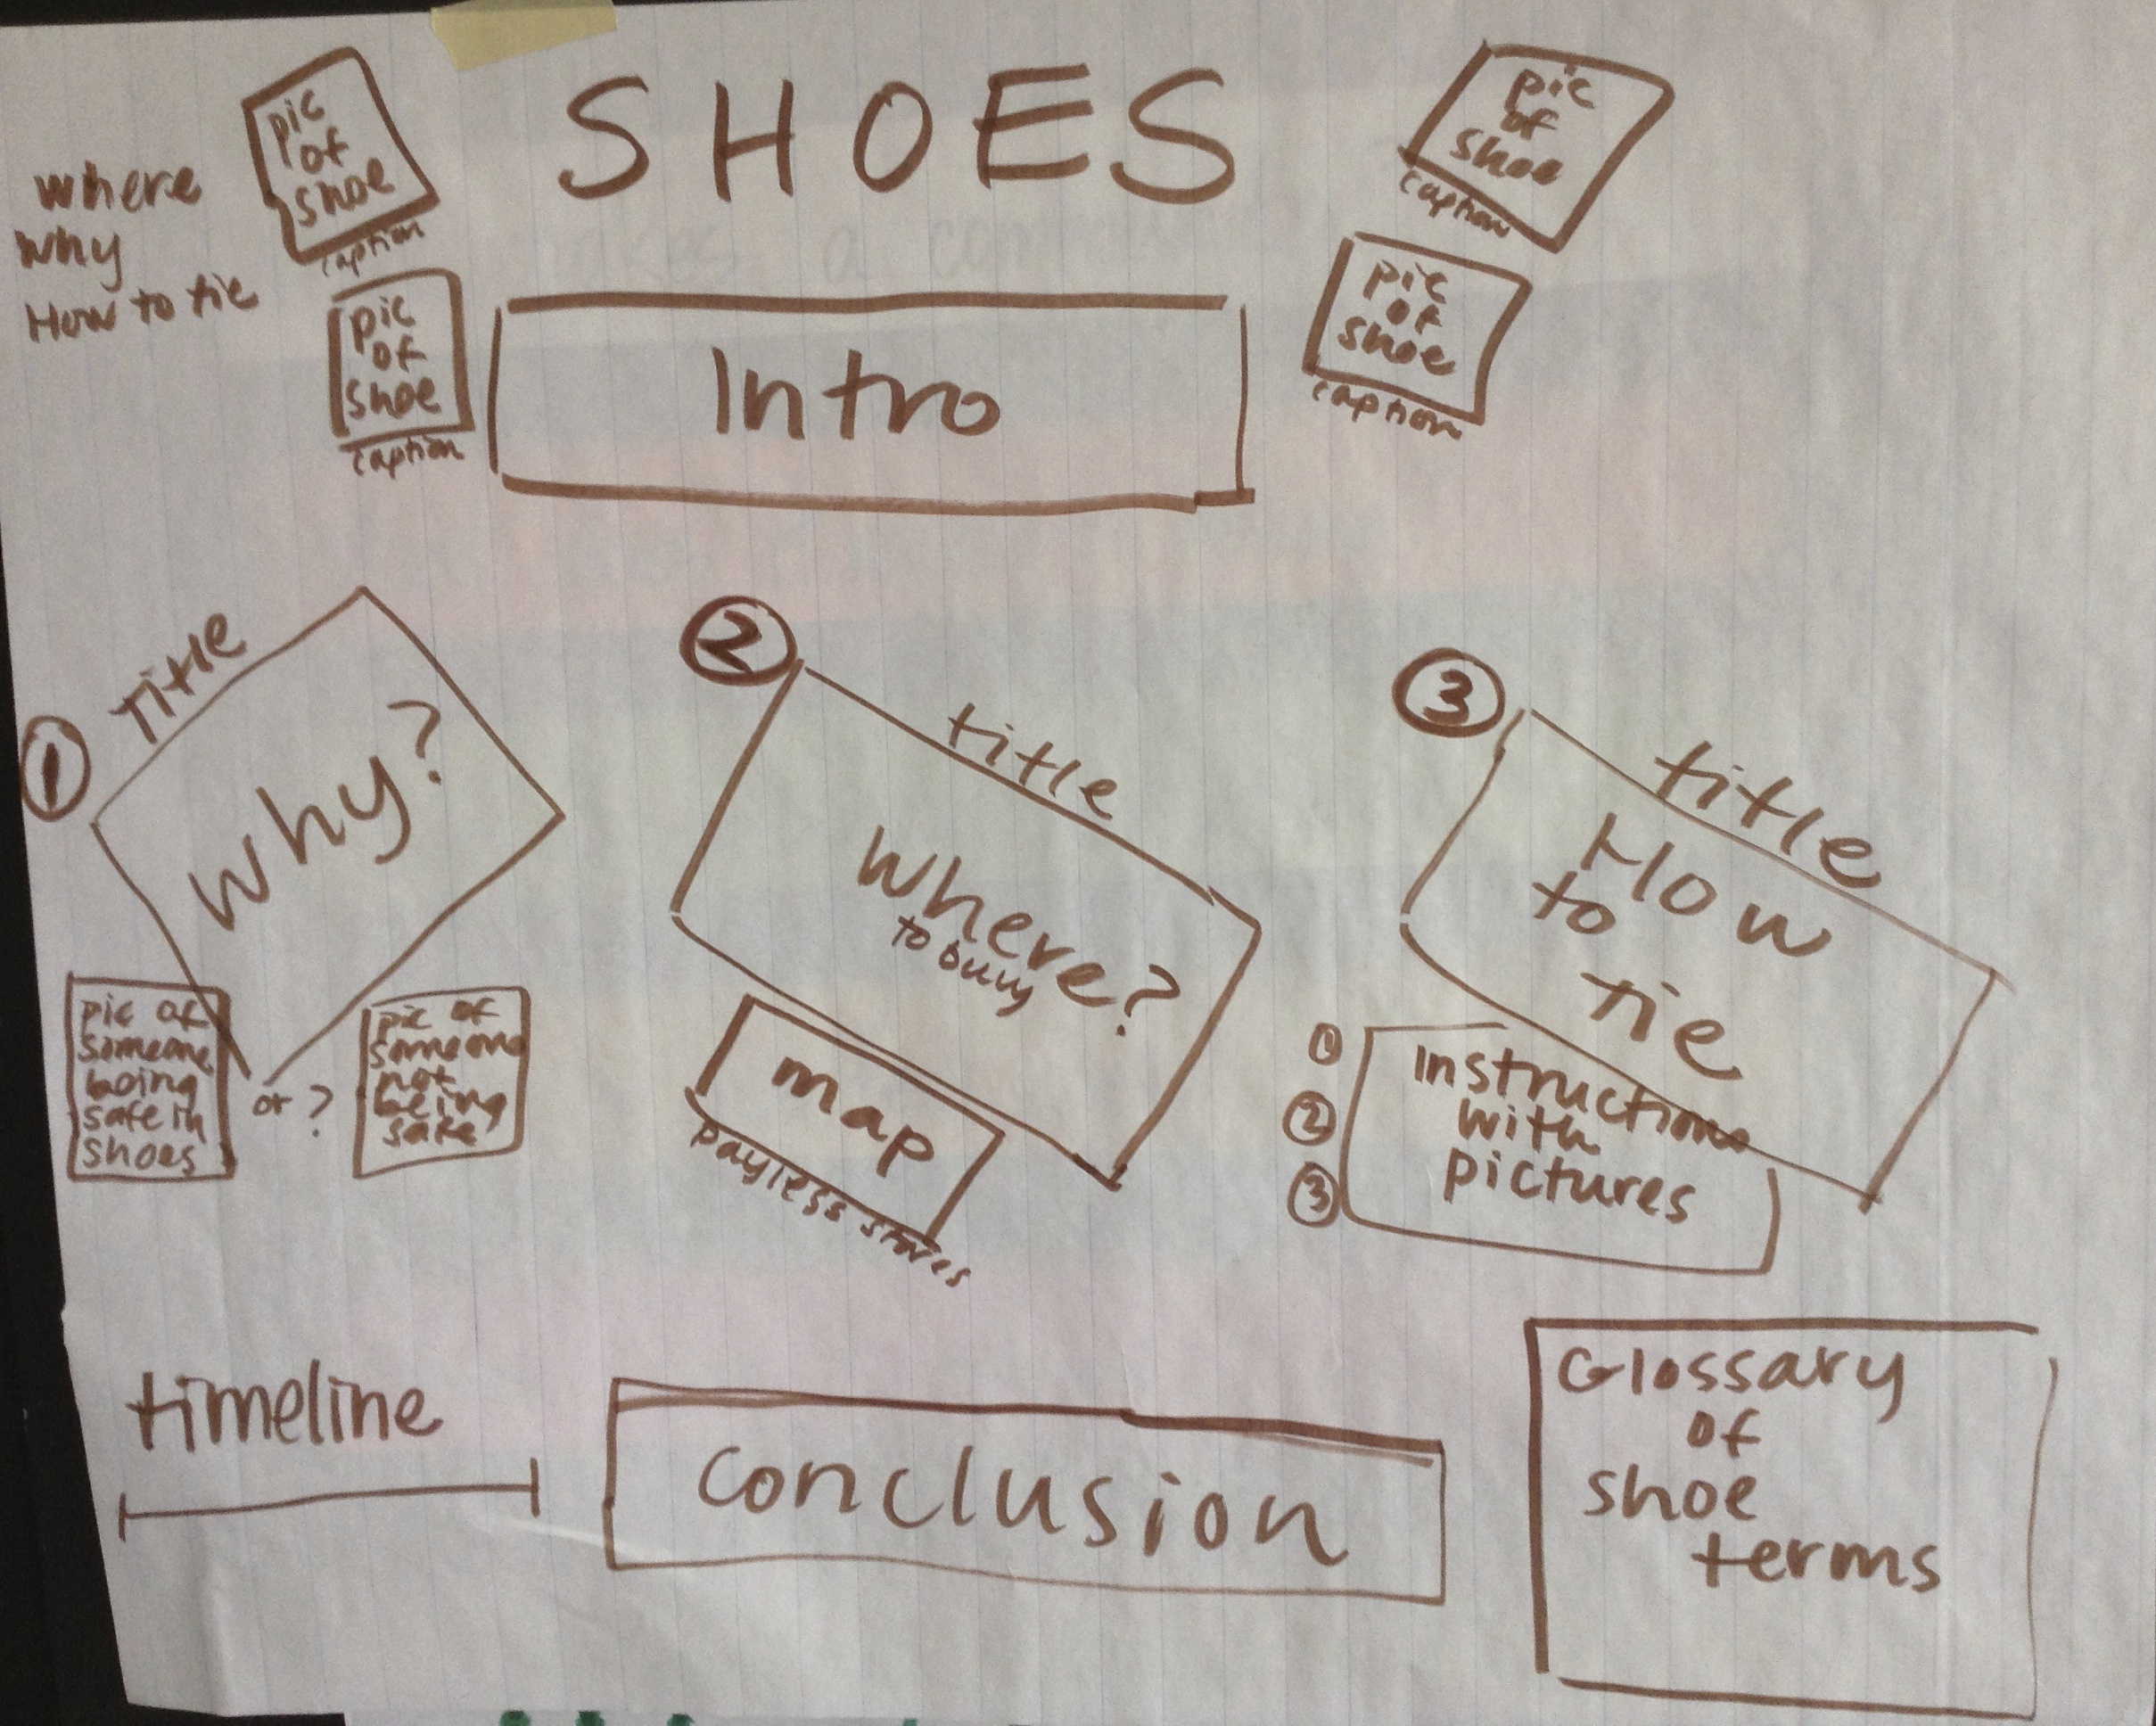 SHOES
pic
of
shoe
caption
pic
of
shoe
caption
where
why
How to tie
pic
of
shoe
caption
pic
of
shoe
caption
Intro
1
Title
Why?
pic of
someone
being
safe in
shoes
or ?
pic of
someone
not
being
safe
2
title
Where?
to buy
map
payless stores
3
title
How
to
tie
1
2
3
instructions
with
pictures
timeline
conclusion
Glossary
of
shoe
terms